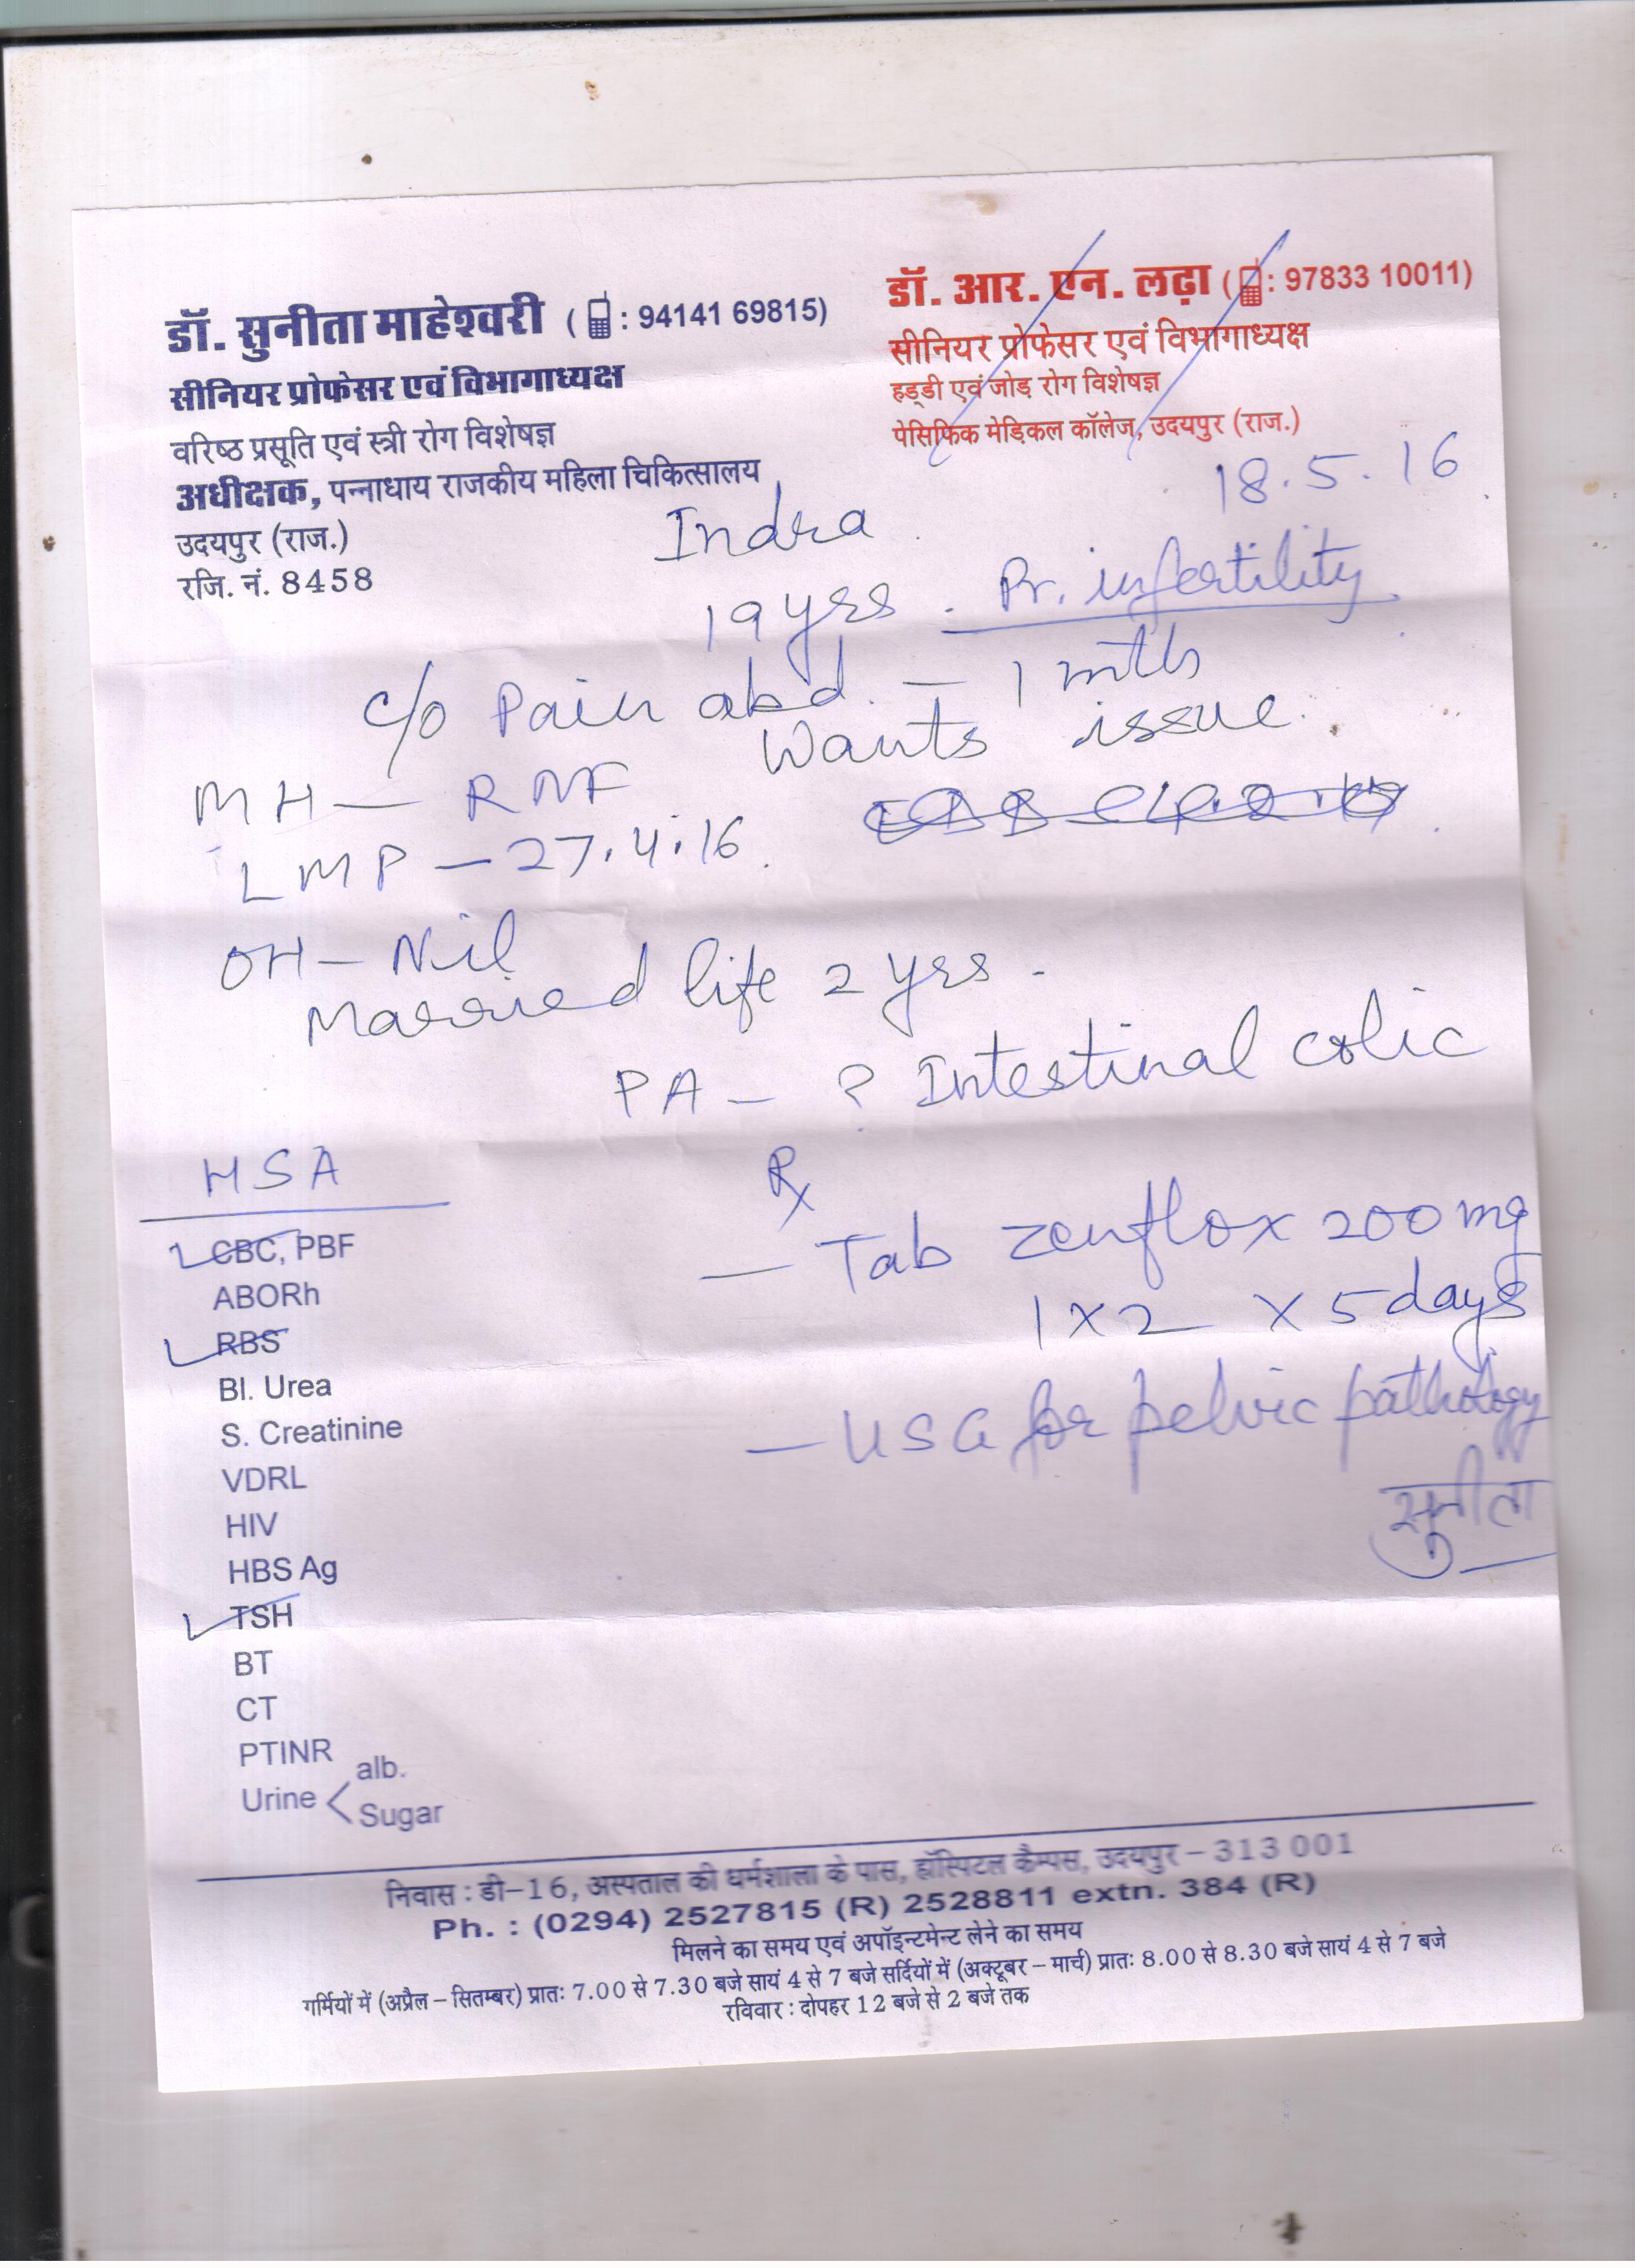 डॉ. सुनीता माहेश्वरी ( : 94141 69815)
सीनियर प्रोफेसर एवं विभागाध्यक्ष
वरिष्ठ प्रसूति एवं स्त्री रोग विशेषज्ञ
अधीक्षक, पन्नाधाय राजकीय महिला चिकित्सालय
उदयपुर (राज.)
रजि. नं. 8458
डॉ. आर. एन. लढ़ा ( : 97833 10011)
सीनियर प्रोफेसर एवं विभागाध्यक्ष
हड्डी एवं जोड़ रोग विशेषज्ञ
पेसिफिक मेडिकल कॉलेज, उदयपुर (राज.)
18.5.16
Indra
19 yrs. Pr. infertility
c/o Pain abd. - 1 mth
Wants issue.
MH - RNF
LMP - 27.4.16.
OH - Nil
Married life 2 yrs.
PA - ? Intestinal colic
HSA
CBC, PBF
ABORh
RBS
Bl. Urea
S. Creatinine
VDRL
HIV
HBS Ag
TSH
BT
CT
PTINR
Urine < alb.
Sugar
Rx
- Tab Zenflox 200 mg
1 x 2 x 5 days
- USG for pelvic pathology
सुनीता
निवास : डी-16, अस्पताल की धर्मशाला के पास, हॉस्पिटल कैम्पस, उदयपुर - 313 001
Ph. : (0294) 2527815 (R) 2528811 extn. 384 (R)
मिलने का समय एवं अपॉइन्टमेन्ट लेने का समय
गर्मियों में (अप्रैल - सितम्बर) प्रातः 7.00 से 7.30 बजे सायं 4 से 7 बजे सर्दियों में (अक्टूबर - मार्च) प्रातः 8.00 से 8.30 बजे सायं 4 से 7 बजे
रविवार : दोपहर 12 बजे से 2 बजे तक